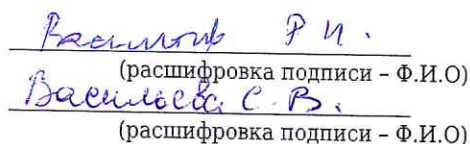 Р И.
(расшифровка подписи – Ф.И.О)
Васильева С. В.
(расшифровка подписи – Ф.И.О)